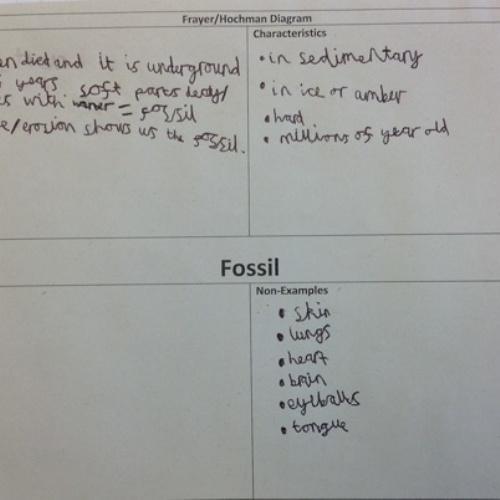 Frayer/Hochman Diagram
died and it is underground
years soft parts
with = fossil
/erosion shows us the fossil.
Characteristics
• in sedimentary
• in ice or amber
• hard
• millions of year old
Fossil
Non-Examples
• skin
• lungs
• heart
• brain
• eyeballs
• tongue